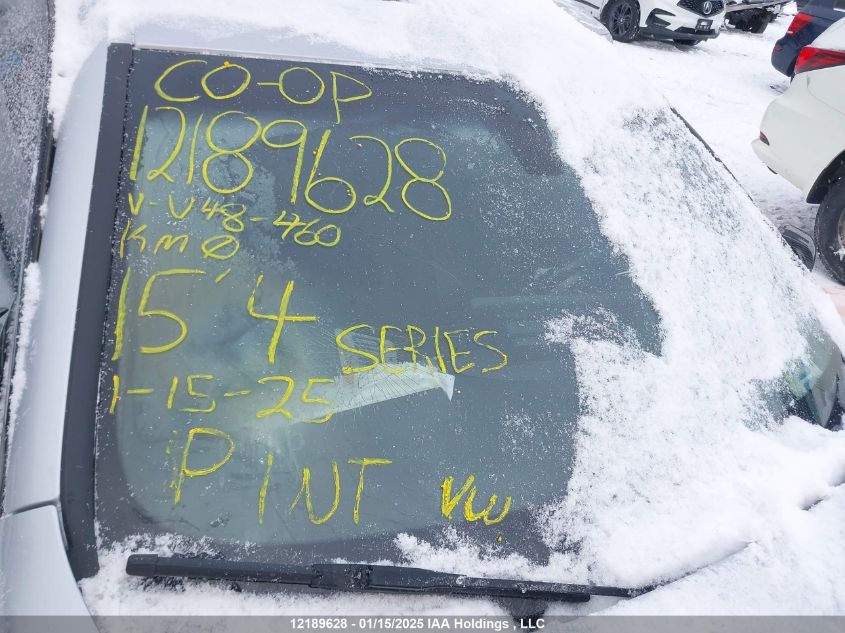 CO-OP
12189628
V-V48-460
KM Ø
15' 4 SERIES
1-15-25
P INT VW
12189628 - 01/15/2025 IAA Holdings , LLC